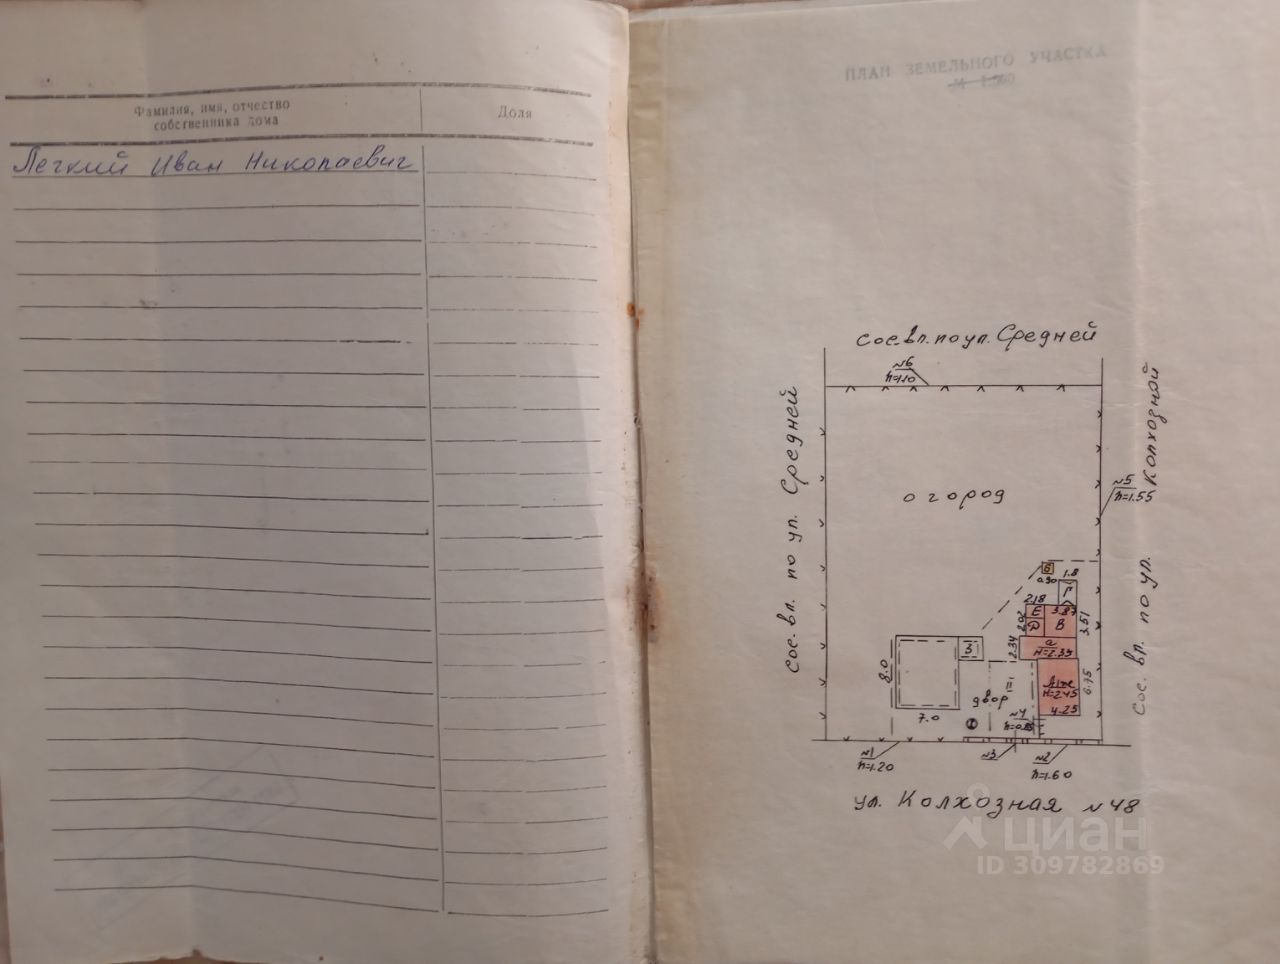 Фамилия, имя, отчество
собственника дома
Доля
Легкий Иван Николаевич
ПЛАН ЗЕМЕЛЬНОГО УЧАСТКА
М 1:500
Сосе.вл. по ул. Средней
№6
h=1.10
Сосе. вл. по ул. Средней
Сосе. вл. по ул. Колхозной
огород
№5
h=1.55
Б
0.90
1.8
Г
2.18
Е
3.87
2.02
Д
В
3.51
2.34
а
н=2.35
З
8.0
7.0
двор
н=2.45
6.75
4.25
№4
№1
h=1.20
№3
№2
h=1.60
ул. Колхозная №48
циан
ID 309782869